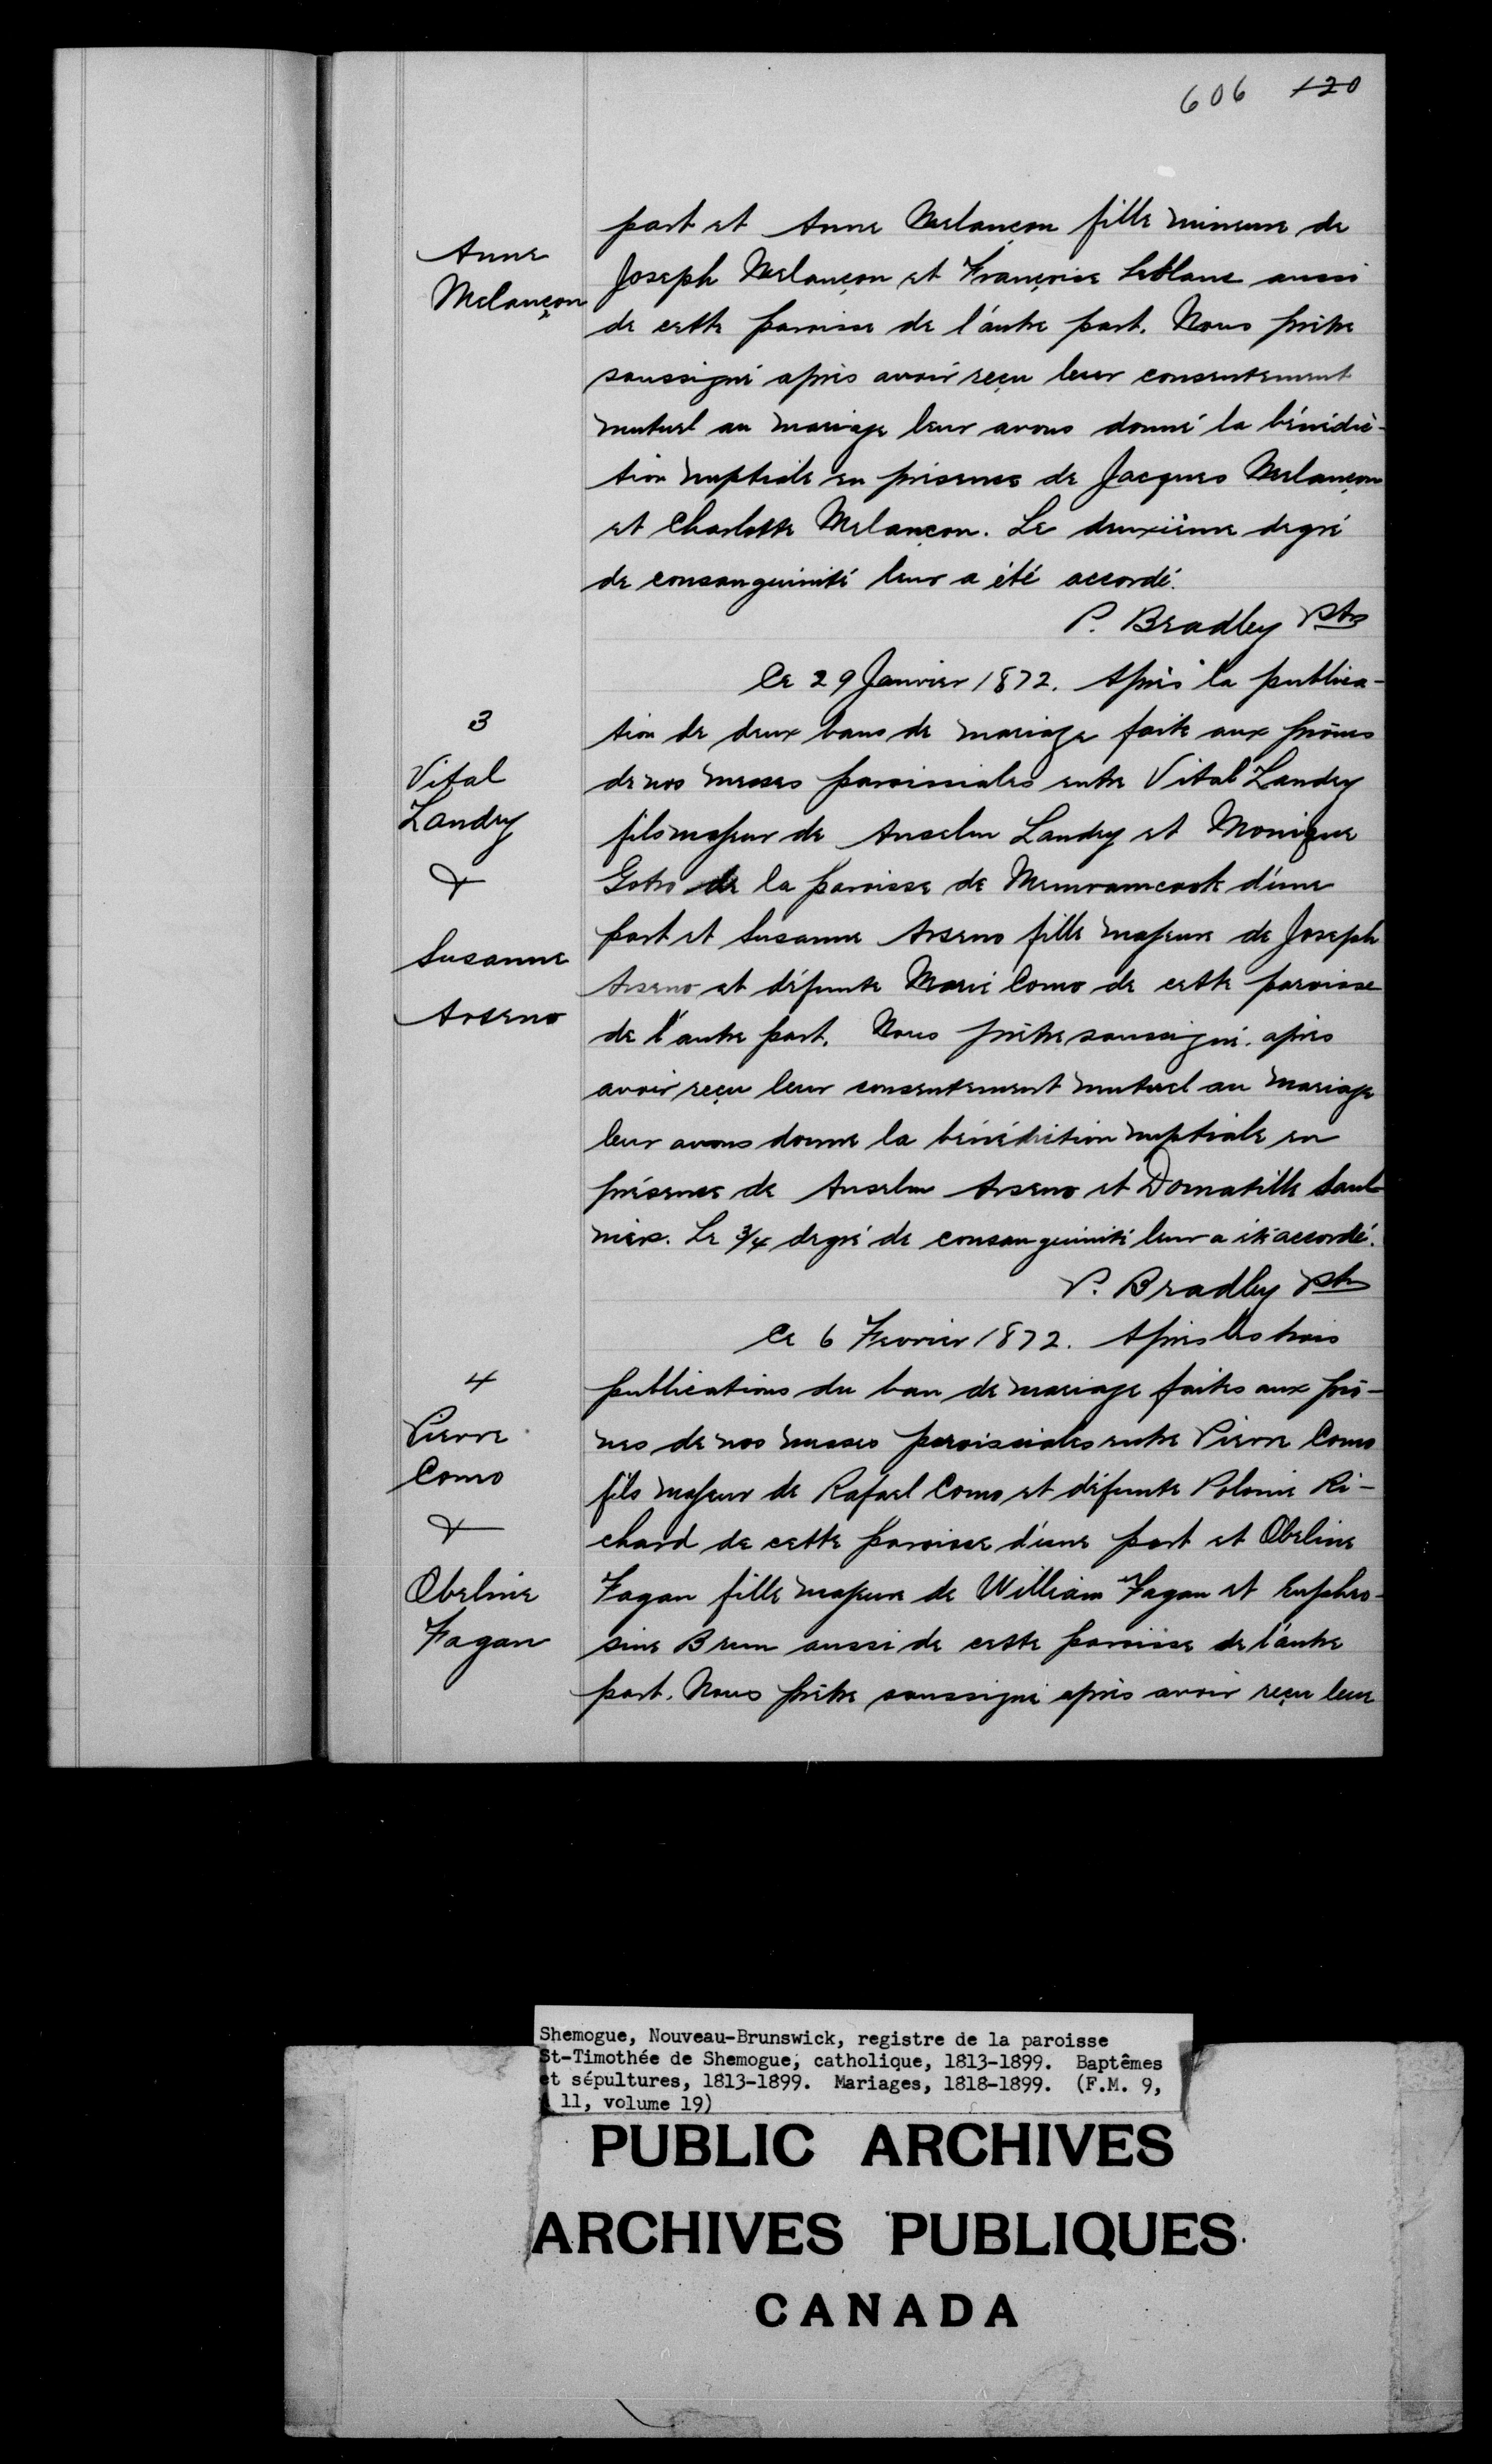 606 120
part et Anne Melançon fille mineure de
Anne
Joseph Melançon et Françoise LeBlanc aussi
Melançon
de cette paroisse de l'autre part. Nous prêtre
soussigné après avoir reçu leur consentement
mutuel au mariage leur avons donné la bénédic-
tion nuptiale en présence de Jacques Melançon
et Charlotte Melançon. Le deuxième degré
de consanguinité leur a été accordé.
P. Bradley Ptre
Ce 29 Janvier 1872. Après la publica-
3
tion de deux bans de mariage faite aux prônes
Vital
de nos messes paroissiales entre Vital Landry
Landry
fils majeur de Anselm Landry et Monique
&
Gotro de la paroisse de Memramcook d'une
Susanne
part et Susanne Arseno fille majeure de Joseph
Arseno
Arseno et défunte Marie Como de cette paroisse
de l'autre part. Nous prêtre soussigné. après
avoir reçu leur consentement mutuel au mariage
leur avons donne la bénédiction nuptiale en
présence de Anselm Arseno et Domatille Saul-
nier. Le 3/4 degré de consanguinité leur a été accordé.
P. Bradley Ptre
Ce 6 Fevrier 1872. Après les trois
4
publications du ban de mariage faites aux prô-
Pierre
nes de nos messes paroissiales entre Pierre Como
Como
fils majeur de Rafael Como et défunte Polonie Ri-
&
chard de cette paroisse d'une part et Obeline
Obeline
Fagan fille majeure de William Fagan et Euphro-
Fagan
sine Brun aussi de cette paroisse de l'autre
part. Nous prêtre soussigné après avoir reçu leur
Shemogue, Nouveau-Brunswick, registre de la paroisse
St-Timothée de Shemogue, catholique, 1813-1899. Baptêmes
et sépultures, 1813-1899. Mariages, 1818-1899. (F.M. 9,
11, volume 19)
PUBLIC ARCHIVES
ARCHIVES PUBLIQUES
CANADA